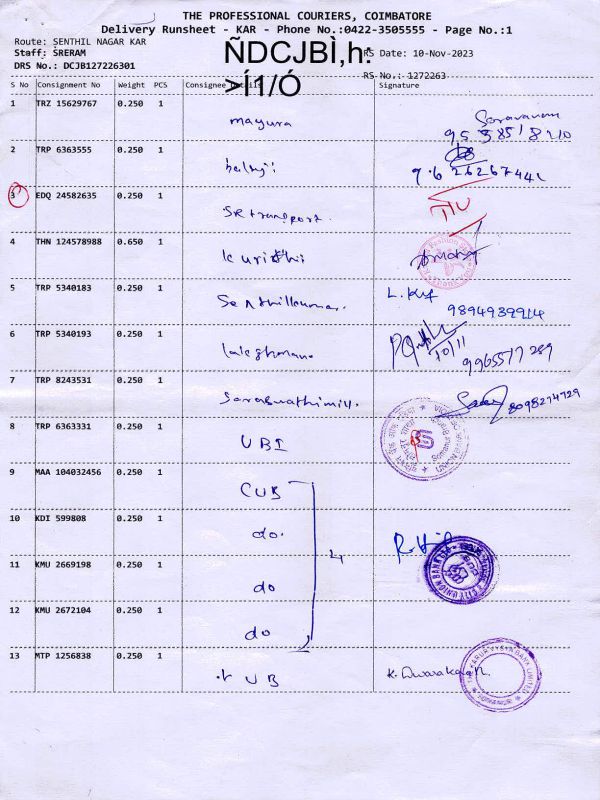 THE PROFESSIONAL COURIERS, COIMBATORE
Delivery Runsheet - KAR - Phone No.:0422-3505555 - Page No.:1
Route: SENTHIL NAGAR KAR
Staff: SRERAM
ÑDCJBÌ,h:
RS Date: 10-Nov-2023
DRS No.: DCJB127226301
>Í1/Ó
RS No.: 1272263
S No Consignment No Weight PCS Consignee Details Signature
1 TRZ 15629767 0.250 1 mayura
2 TRP 6363555 0.250 1 balaji
3 EDQ 24582635 0.250 1 SR transport.
4 THN 124578988 0.650 1
5 TRP 5340183 0.250 1 Senthilkumar. 9894939914
6 TRP 5340193 0.250 1 10/11 9965517289
7 TRP 8243531 0.250 1 Saraswathi mill. 8098274729
8 TRP 6363331 0.250 1 UBI
9 MAA 104032456 0.250 1 CUB
10 KDI 599808 0.250 1 do. 4
11 KMU 2669198 0.250 1 do
12 KMU 2672104 0.250 1 do
13 MTP 1256838 0.250 1 K. Dwarakan.